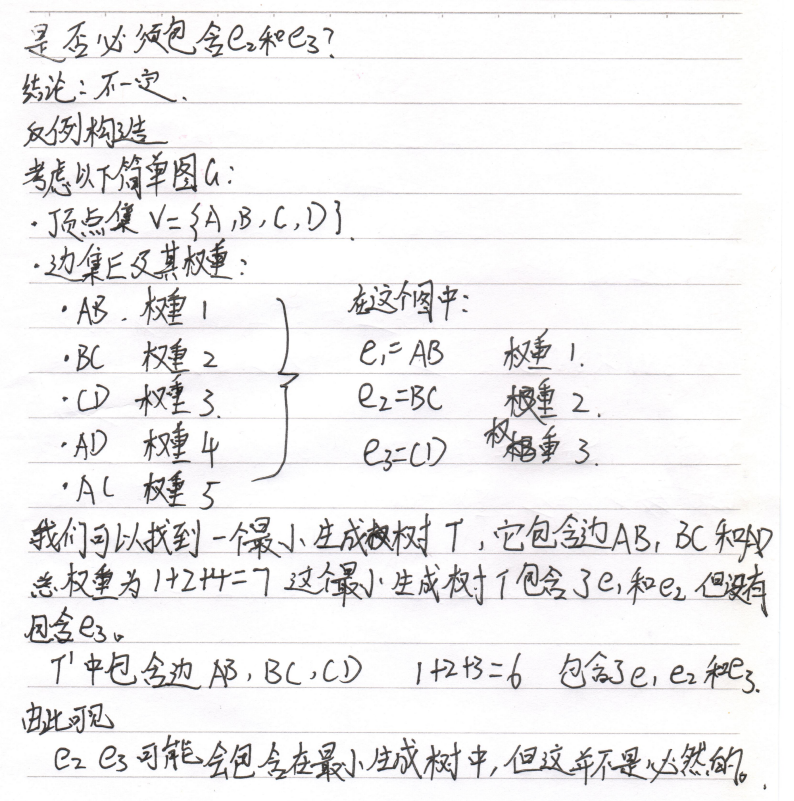 是否必须包含e₂和e₃?
结论:不一定.
反例构造
考虑以下简单图G:
·顶点集 V={A,B,C,D}.
·边集E及其权重:
·AB. 权重 1
·BC 权重 2
·CD 权重 3.
·AD 权重 4
·AC 权重 5
在这个图中:
e₁=AB 权重 1.
e₂=BC 权重 2.
e₃=CD 权重 3.
我们可以找到一个最小生成树T,它包含边AB,BC和AD
总权重为1+2+4=7 这个最小生成树T包含了e₁和e₂ 但没有
包含e₃。
T'中包含边 AB,BC,CD 1+2+3=6 包含了e₁ e₂和e₃.
由此可见
e₂ e₃可能会包含在最小生成树中,但这并不是必然的。